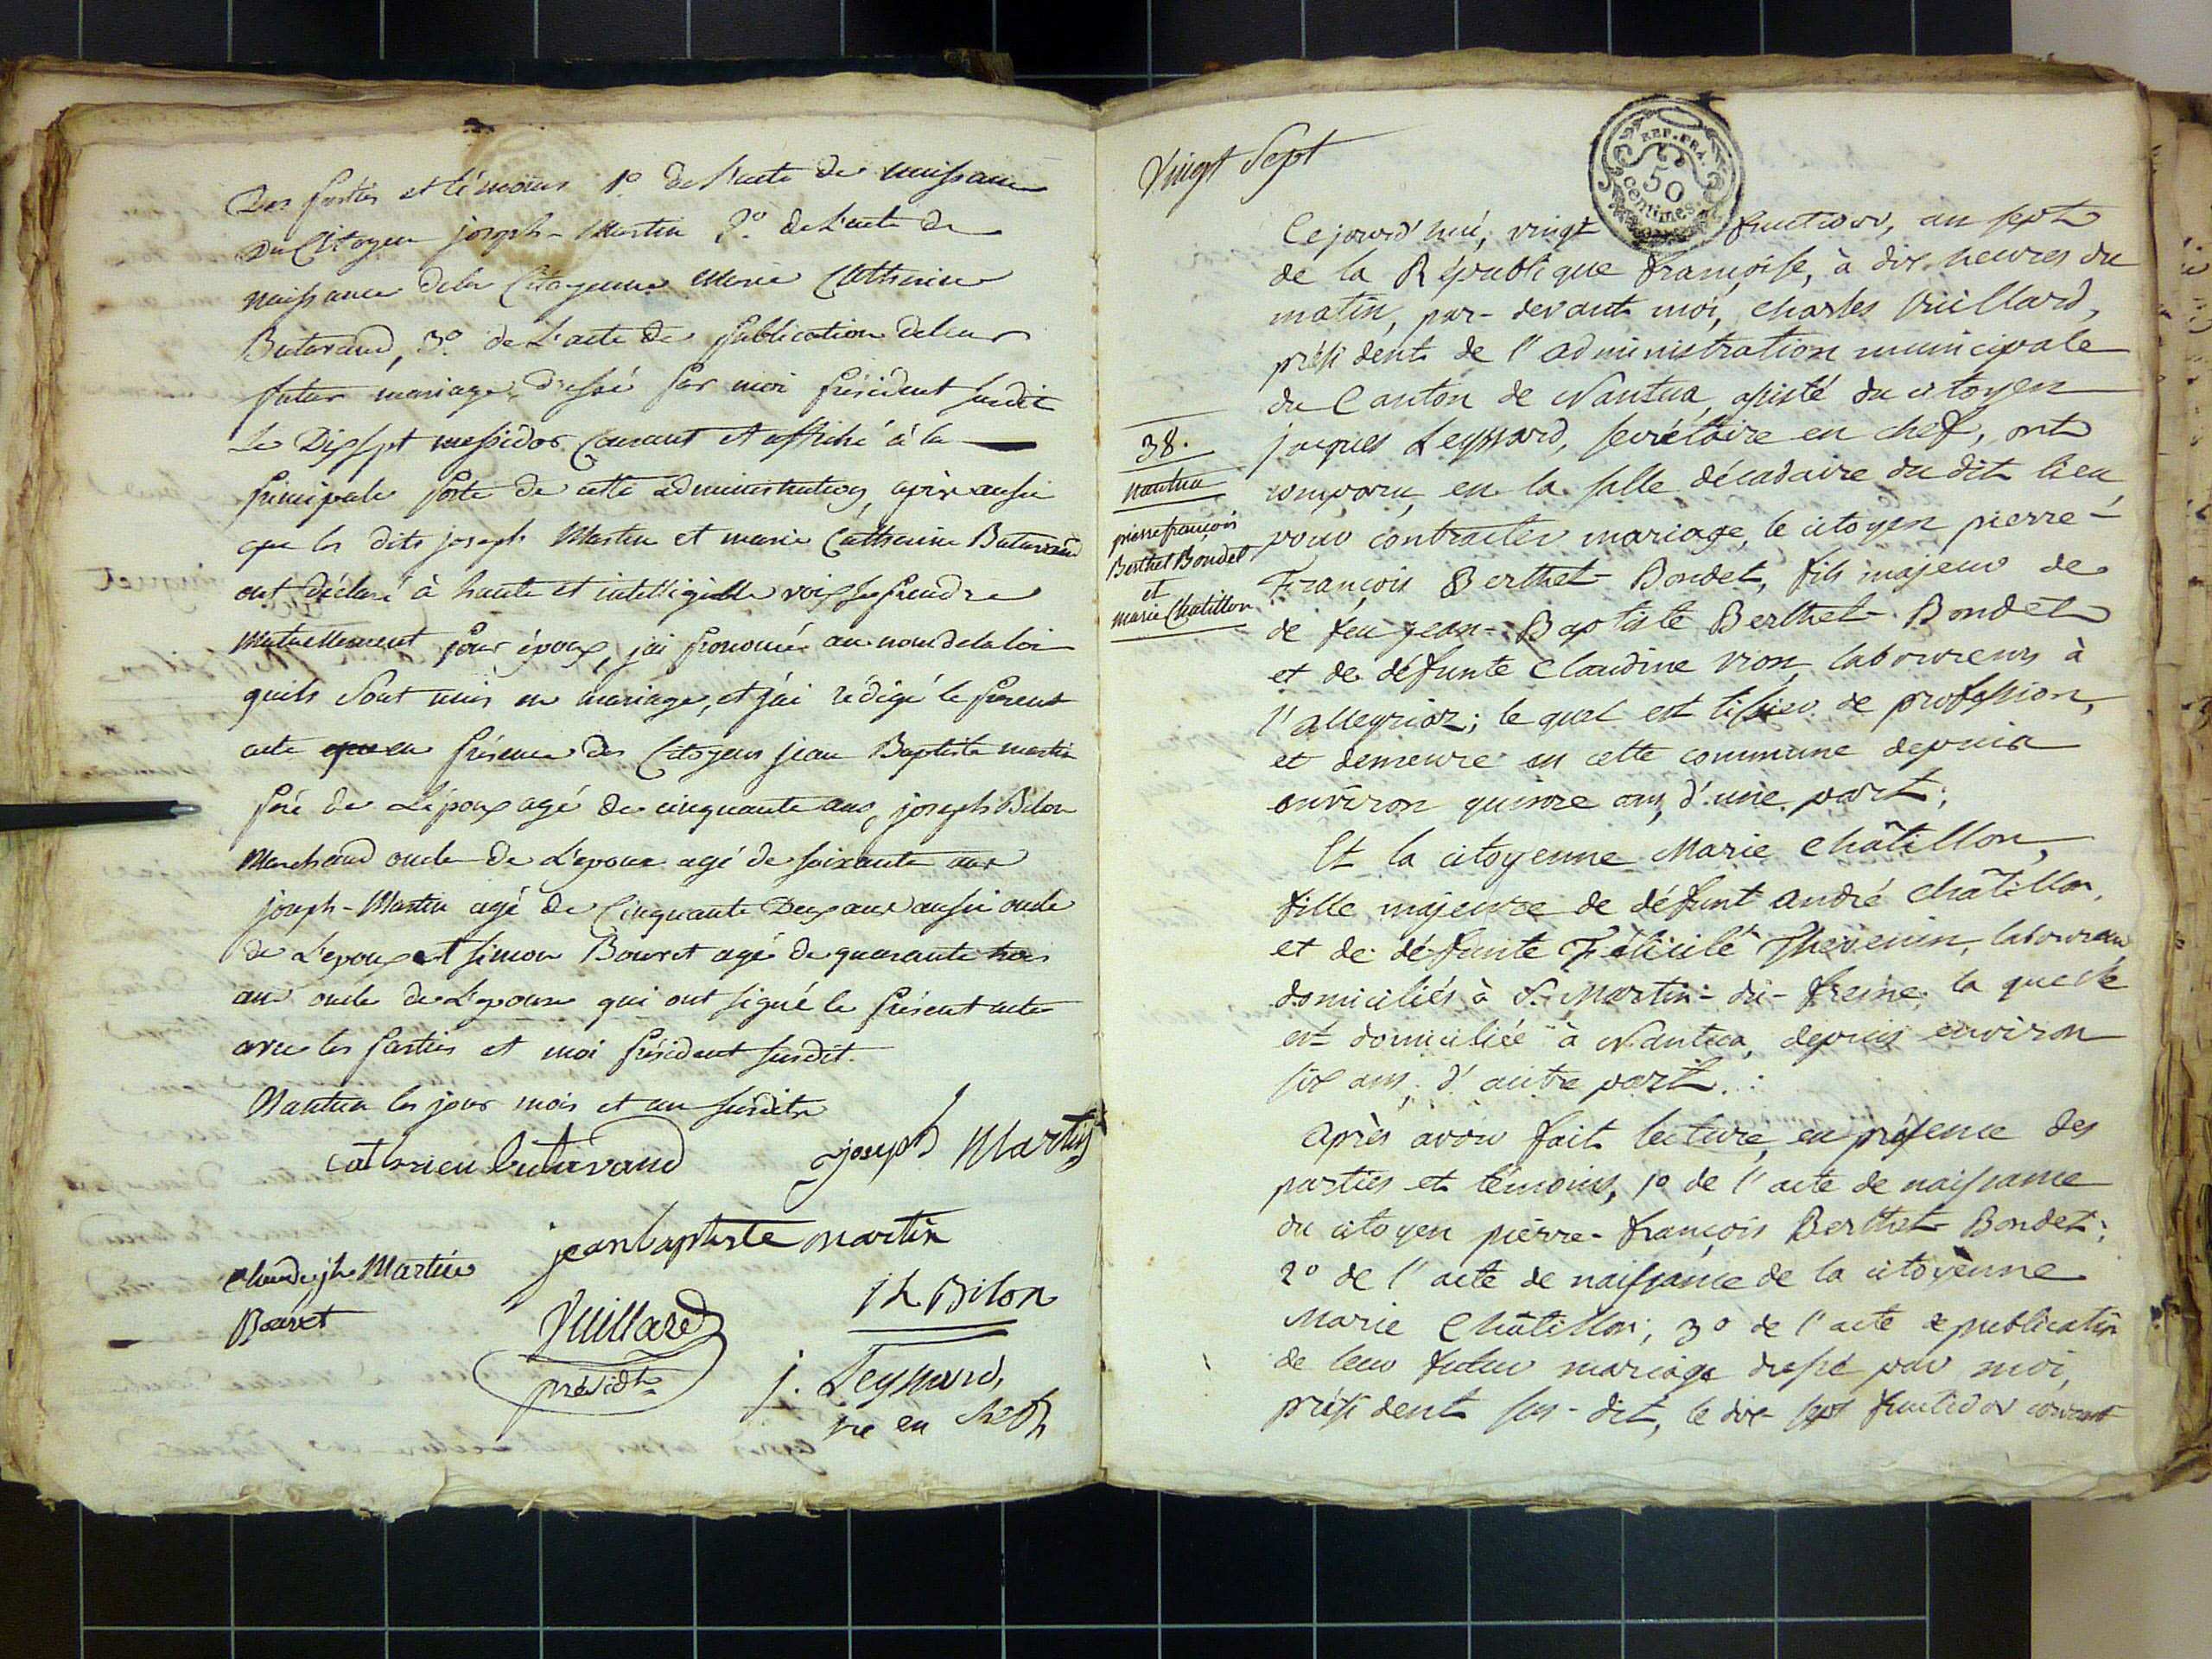 Des parties et témoins 1° de l'acte de naissance
Du Citoyen joseph-Martin 2° de L'acte de
naissance dela Citoyenne Marie Catherine
Butavand, 3° de L'acte de publication deleur
futur mariage, dressé par moi président susdit
le Dixsept messidor Courant et affiché à la
principale porte de cette administration, après aussi
que les dits joseph Martin et marie Catherine Butavand
ont déclaré à haute et intelligible voix se prendre
Mutuellement pour époux, j'ai prononcé au nom dela loi
quils sont unis en mariage, et j'ai rédigé le présent
acte en présence des Citoyens jean Baptiste martin
péré de L'époux agé de cinquante ans, joseph Bilon
Marchand oncle de L'epoux agé de soixante ans
joseph-Martin agé de Cinquante Deux ans aussi oncle
de L'epoux et simon Bouvet agé de quarante trois
ans oncle de L'epouse qui ont signé le présent acte
avec les parties et moi président susdit.
Nantua les jour mois et an susdits
joseph Martin
jean baptiste martin
Claude jh Martin
jh Bilon
Bouvet
Vuillard
présidt
j. Leyssard,
re en chef
Vingt Sept
REP. FRA.
50
centimes.
Cejourd'hui, vingt fructidor, an sept
de la République françoise, à dix heures du
matin, par-devant moi, charles Vuillard,
président de l'administration municipale
du Canton de Nantua, assisté du citoyen
jacques Leyssard, secrétaire en chef, ont
comparu, en la salle décadaire du dit lieu,
pour contracter mariage, le citoyen pierre-
François Berthet-Bondet, fils majeur de
de feu jean-Baptiste Berthet-Bondet
et de défunte Claudine Vion, laboureurs à
l'alleyriat; le quel est tissier de profession,
et demeure en cette commune depuis
environ quinze ans, d'une part;
Et la citoyenne Marie Châtillon,
fille majeure de défunt André Châtillon,
et de défunte Félicité Thevenin, laboureurs
domiciliés à St Martin-du-freine, la quelle
est domiciliée à Nantua, depuis environ
six ans, d'autre part.
Après avoir fait lecture, en présence des
parties et témoins, 1° de l'acte de naissance
du citoyen pierre-françois Berthet-Bondet;
2° de l'acte de naissance de la citoyenne
Marie Châtillon; 3° de l'acte de publication
de leur futur mariage dressé par moi,
président sus-dit, le dix-sept fructidor courant
38.
nantua
pierre françois
Berthet Bondet
et
marie Chatillon